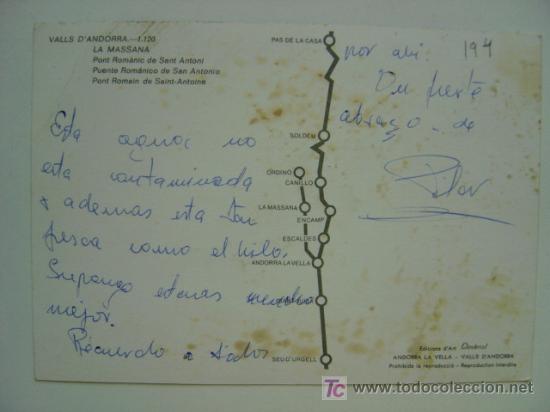 VALLS D'ANDORRA.—1.120
LA MASSANA
Pont Romànic de Sant Antoni
Puente Románico de San Antonio
Pont Romain de Saint-Antoine
Esta agua no
esta contaminada
y ademas esta tan
fresca como el hielo.
Supongo estaras mucho
mejor.
Recuerdo a todos
por ahi.
Un fuerte
abrazo de
Pilar
194
PAS DE LA CASA
SOLDEU
ORDINO
CANILLO
LA MASSANA
ENCAMP
ESCALDES
ANDORRA LA VELLA
SEU D'URGELL
Edicions d'Art
ANDORRA LA VELLA - VALLS D'ANDORRA
Prohibida la reproducció - Reproduction interdite
TC todocoleccion